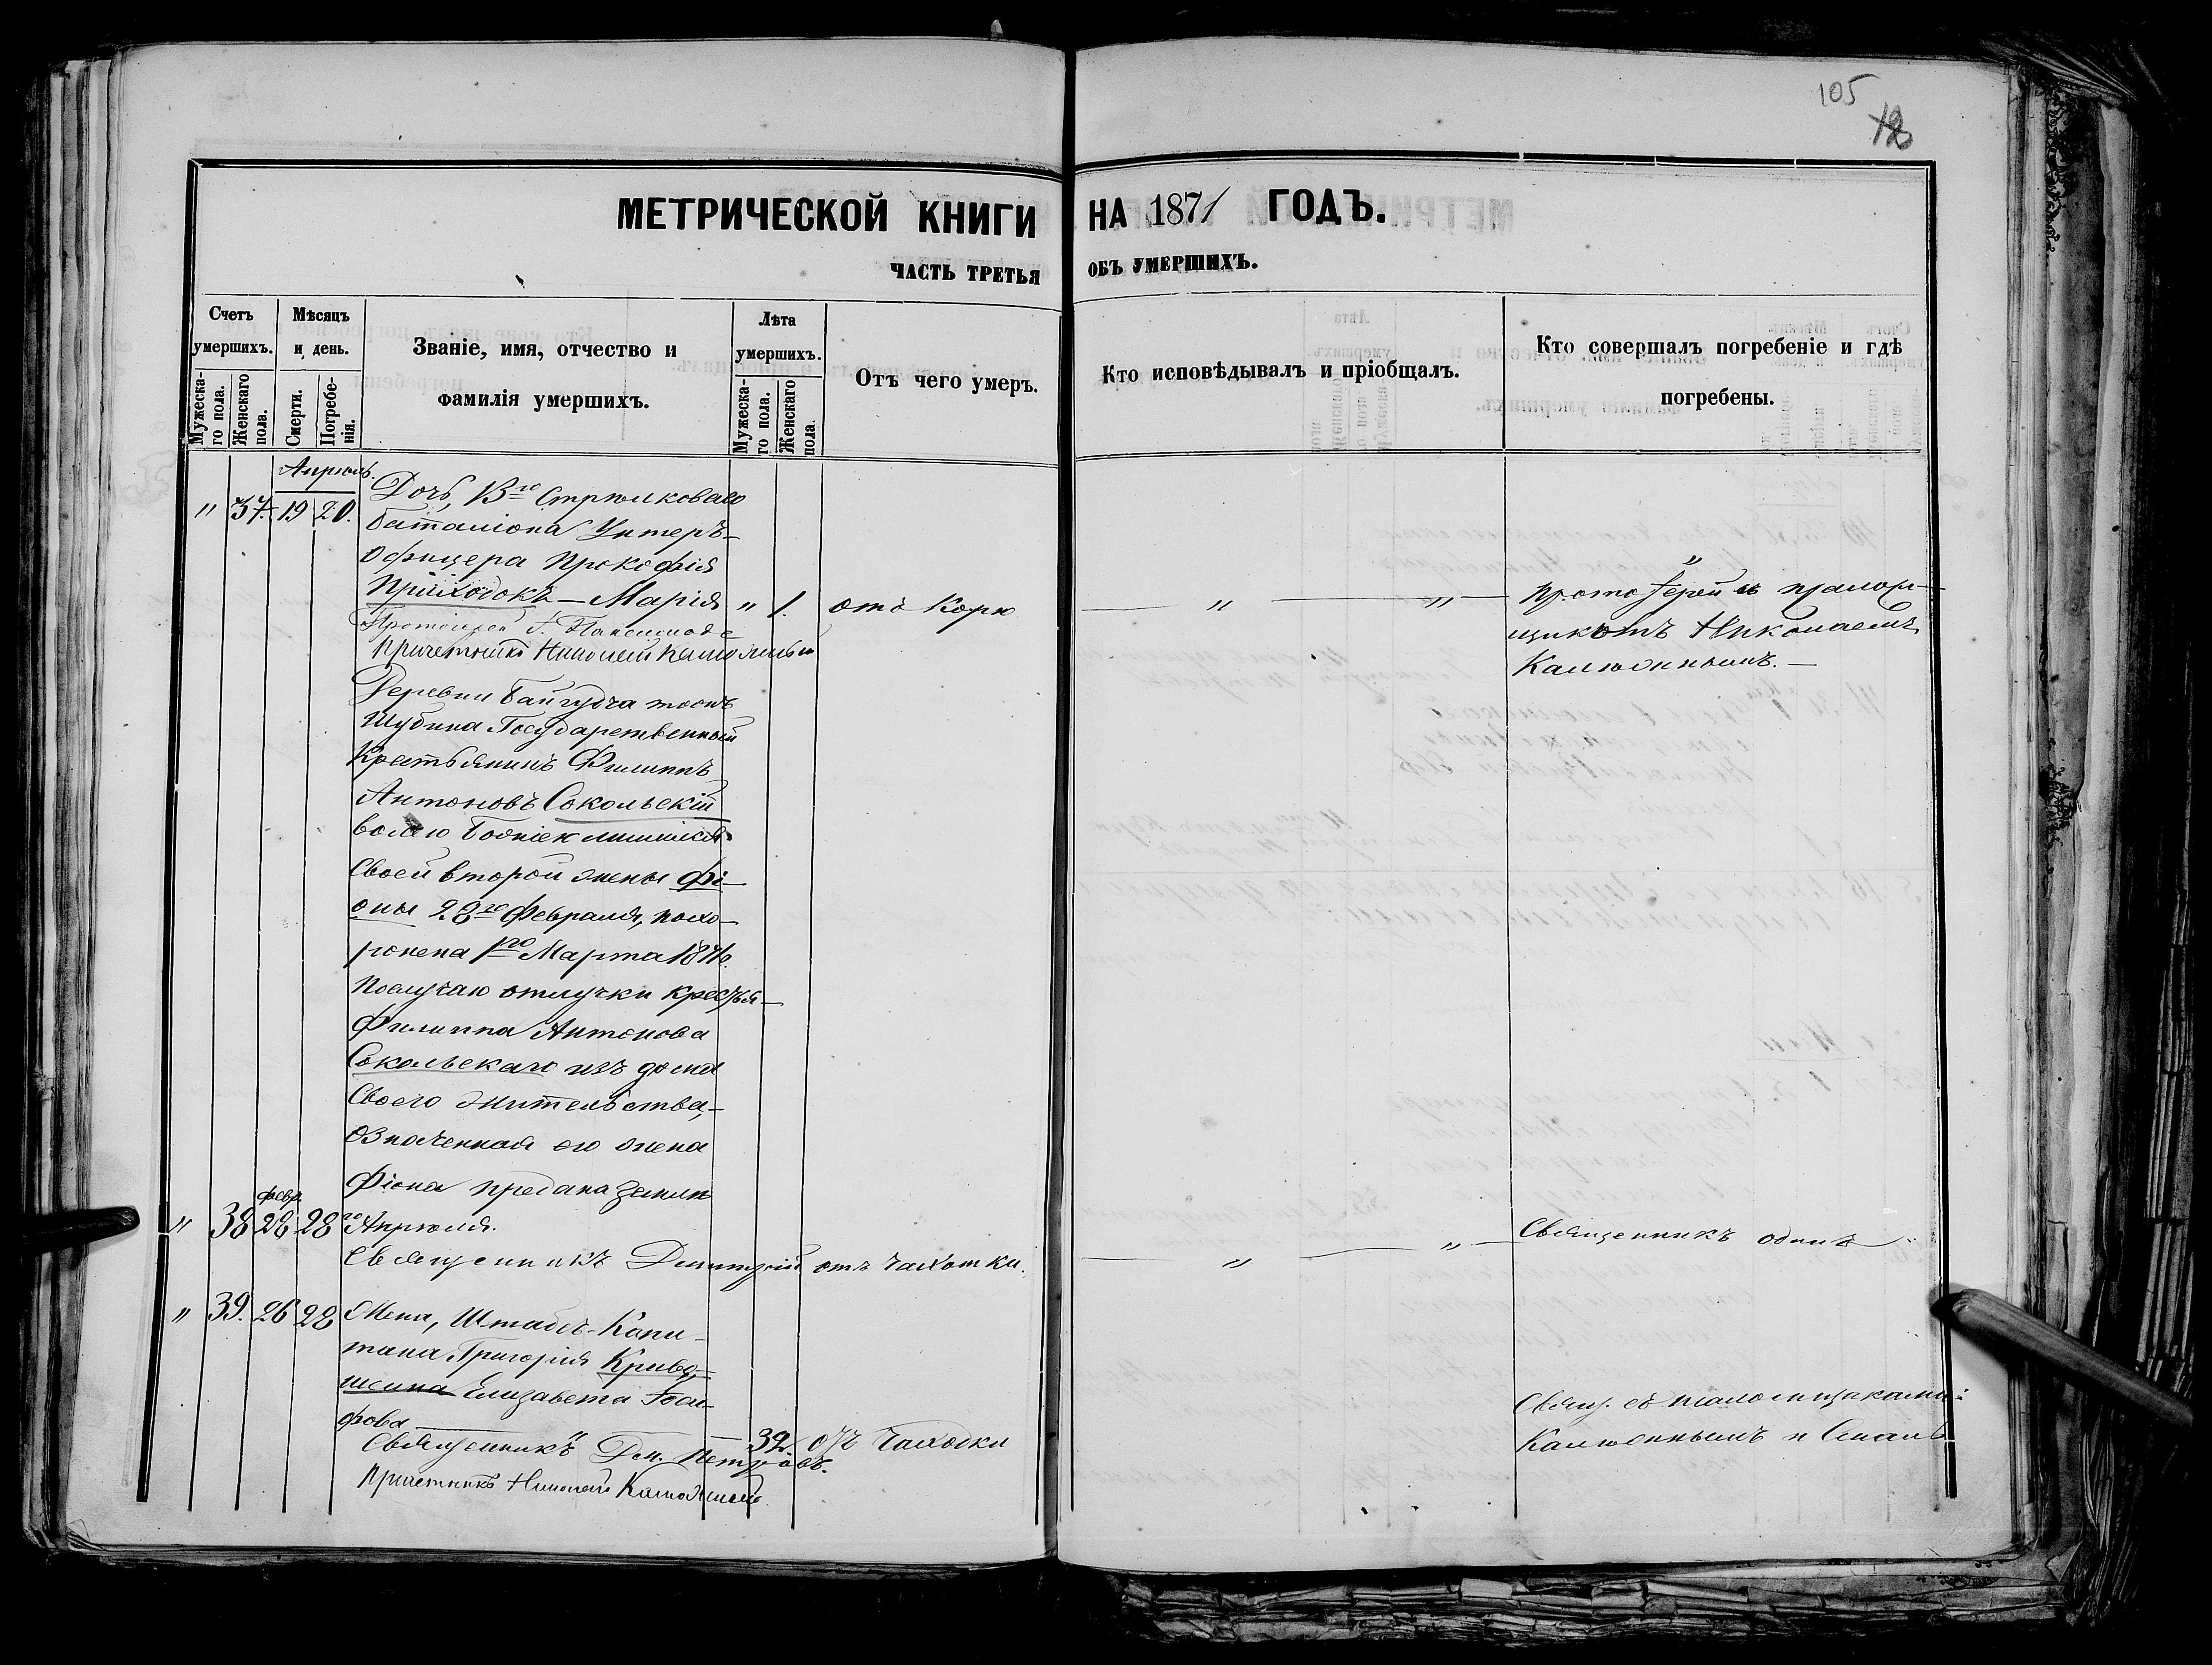 105
МЕТРИЧЕСКОЙ КНИГИ НА 1871 ГОДЪ.
ЧАСТЬ ТРЕТЬЯ ОБЪ УМЕРШИХЪ.
Счетъ умершихъ.
Мужеска-го пола.
Женскаго пола.
Мѣсяцъ и день.
Смерти.
Погребе-нія.
Званіе, имя, отчество и фамилія умершихъ.
Лѣта умершихъ.
Мужеска-го пола.
Женскаго пола.
Отъ чего умеръ.
Кто исповѣдывалъ и пріобщалъ.
Кто совершалъ погребеніе и гдѣ погребены.
Апрѣль.
" 37. 19 20.
Дочь, 13го Стрѣлковаго
баталіона Унтеръ-
Офицера Прокофія
Приходокъ — Марія " 1. отъ Корю — " — " —
Протоіерей
Причетникъ Николай
"
Протоіерей съ
Николаемъ
Калюжнымъ. —
Деревни
Шубина Государственный
Крестьянинъ Филиппъ
Антоновъ Сокольскій
своей второй жены Фі-
оны 28го Февраля, похо-
ронена 1го Марта 1871
Послучаю отлучки Кресть-
Филиппа Антонова
Сокольскаго изъ дома
Своего жительства,
означенная его жена
Фіона предана земли
февр.
" 38 28 28го Апрѣля.
Священникъ Димитрій отъ чахотки. — " — " — Священникъ одинъ
" 39. 26 28 Жена, Штабсъ-Капи-
тана Григорія Криво-
шеина Елизавета Іоси-
фова — 39. отъ Чахотки
Священникъ Дм. Петровъ.
Причетникъ Николай
Свящ. съ
Калюжнымъ и